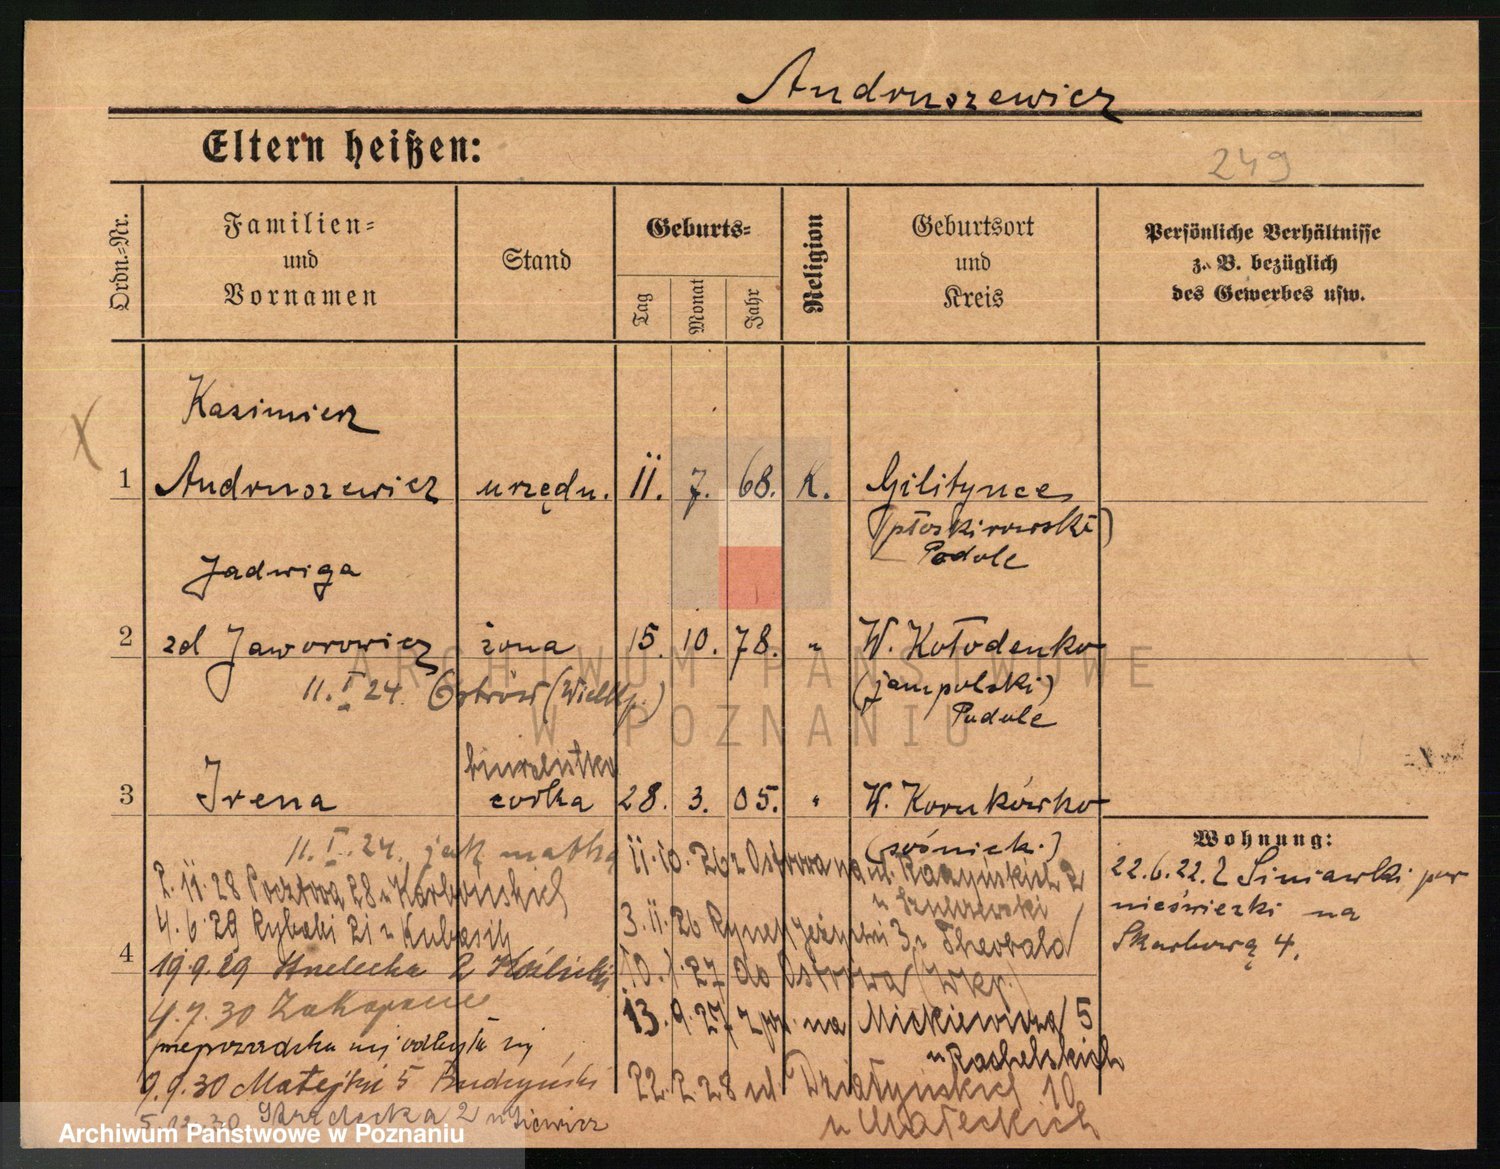 Andruszewicz
Eltern heißen:
249
Ordn.=Nr.
Familien=
und
Vornamen
Stand
Geburts=
Tag
Monat
Jahr
Religion
Geburtsort
und
Kreis
Persönliche Verhältnisse
z. B. bezüglich
des Gewerbes usw.
Kazimierz
1 Andruszewicz urzędn. 11. 7. 68. K. Gilitynce
(płoskirowski)
Podole
Jadwiga
2 zd Jaworowicz żona 15. 10. 78. " W. Kołodenko
11. I. 24. Ostrów (Wielkp.)
(jampolski)
Podole
biuralistka
3 Irena córka 28. 3. 05. " W.
11. I. 24. jak matka
Wohnung:
22.6.22. z Siniawki pow
nieświeski na
Skarbową 4.
11.10.26 z Ostrowa na ul. Raczyńskich 2
2.11.28 Pocztowa 28 u Karbowskich
3.11.26 Rynek Jeżycki 3 u Theobald
4.6.29 Rybaki 21 u
4
19.9.29 Strzelecka 2
10.1.27 do Ostrowa (Wkp.)
4.7.30 Zakopane
13.9.27 z pow. na Mickiewicza 5
przeprowadzka nie odbyła się
u Rachelskich
9.9.30 Matejki 5 Budzyński
22.2.28 ul. Działyńskich 10
u Małeckich
5.12.30 Strzelecka 2
ARCHIWUM PAŃSTWOWE
W POZNANIU
Archiwum Państwowe w Poznaniu